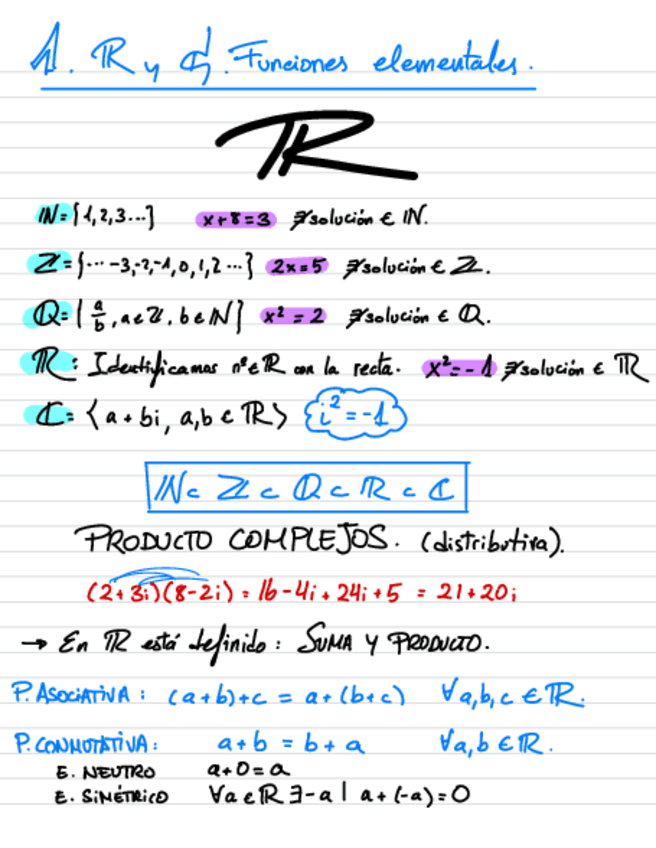 1. ℝ y ℂ. Funciones elementales.
ℝ
ℕ = {1,2,3...} x+8=3 ∄ solución ∈ ℕ.
ℤ = {... -3,-2,-1,0,1,2 ...} 2x=5 ∄ solución ∈ ℤ.
ℚ = { a/b , a∈ℤ, b∈ℕ} x² = 2 ∄ solución ∈ ℚ.
ℝ : Identificamos nº ∈ ℝ con la recta. x² = -1 ∄ solución ∈ ℝ
ℂ = {a + bi, a,b ∈ ℝ} i² = -1
ℕ ⊂ ℤ ⊂ ℚ ⊂ ℝ ⊂ ℂ
PRODUCTO COMPLEJOS. (distributiva).
(2+3i)(8-2i) = 16-4i+24i+5 = 21+20i
→ En ℝ está definido : SUMA Y PRODUCTO.
P. ASOCIATIVA : (a+b)+c = a+(b+c) ∀a,b,c ∈ ℝ.
P. CONMUTATIVA : a+b = b+a ∀a,b ∈ ℝ.
E. NEUTRO a+0=a
E. SIMÉTRICO ∀a∈ℝ ∃-a | a+(-a)=0